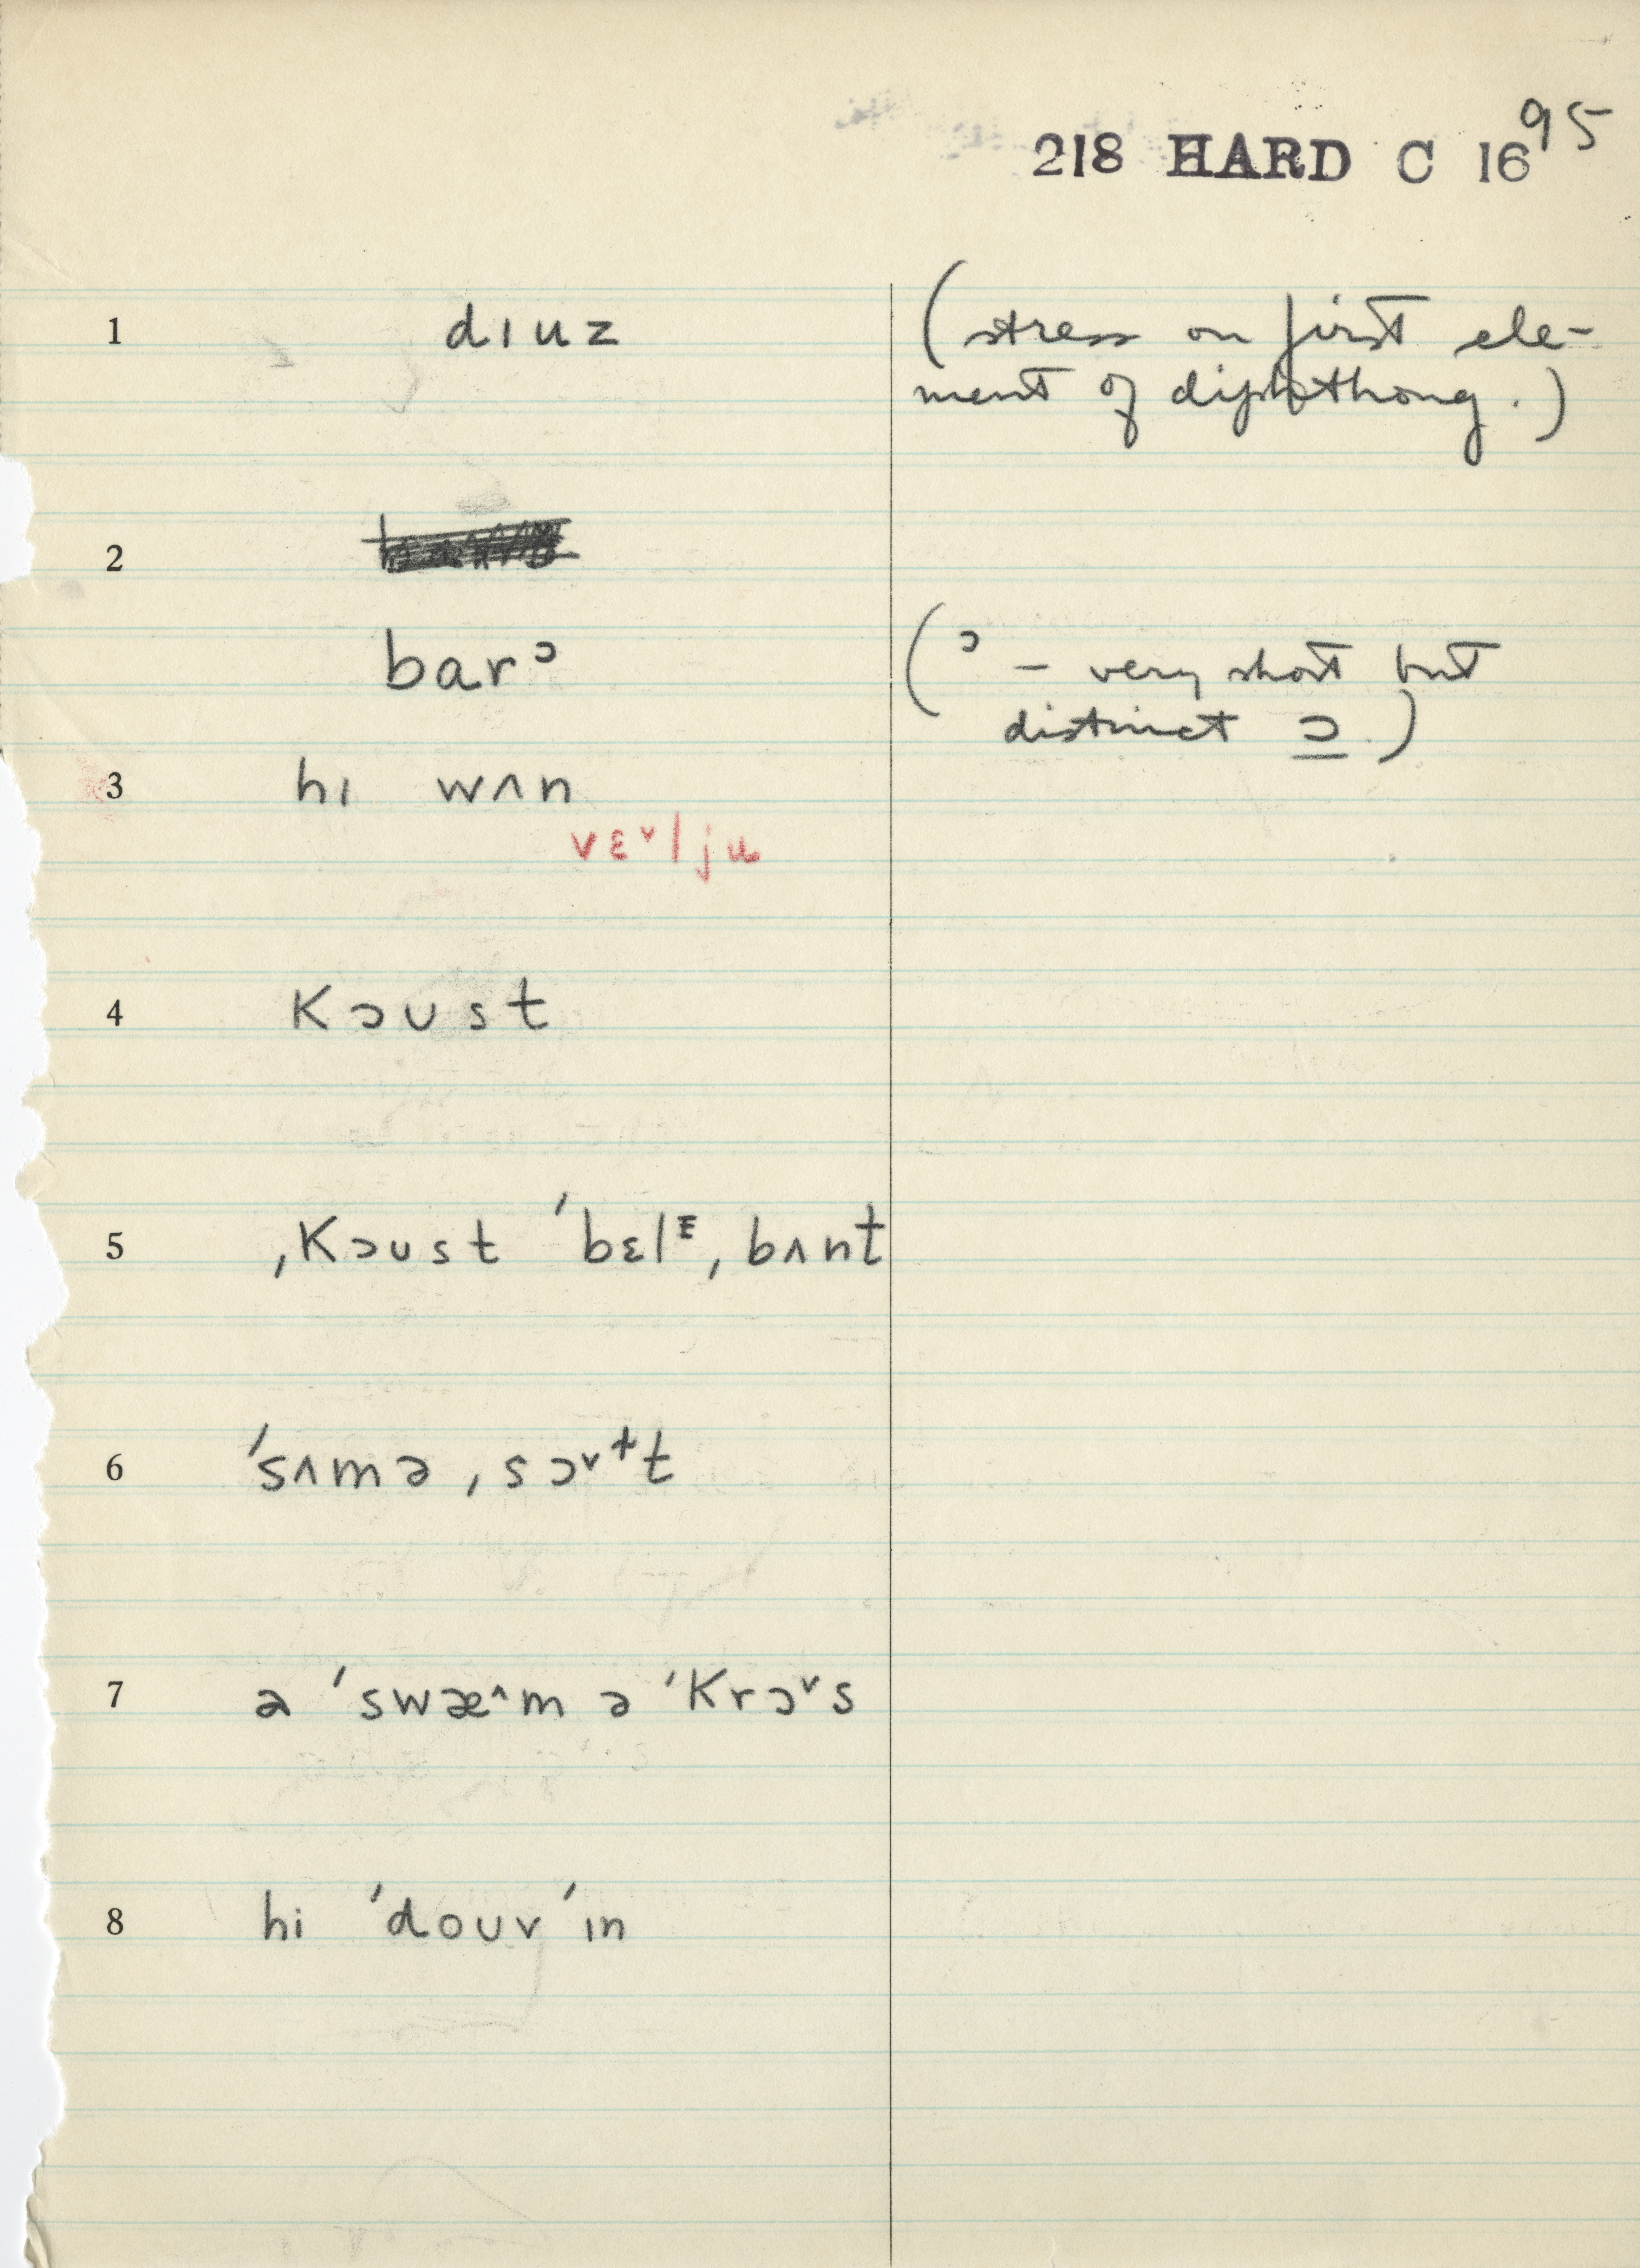 95
218 HARD C 16
1 dɪuz (stress on first ele-
ment of diphthong.)
2
barᵓ (ᵓ – very short but
distinct ɔ.)
3 hɪ wʌn
vɛ˅l ju
4 Kɔust
5 ˌKɔust ˈbɛlᴱ, bʌnt
6 ˈsʌmə ˌsɔ˅ᵗt
7 ə ˈswæ^m ə ˈKrɔ˅s
8 hi ˈdouv ˈɪn